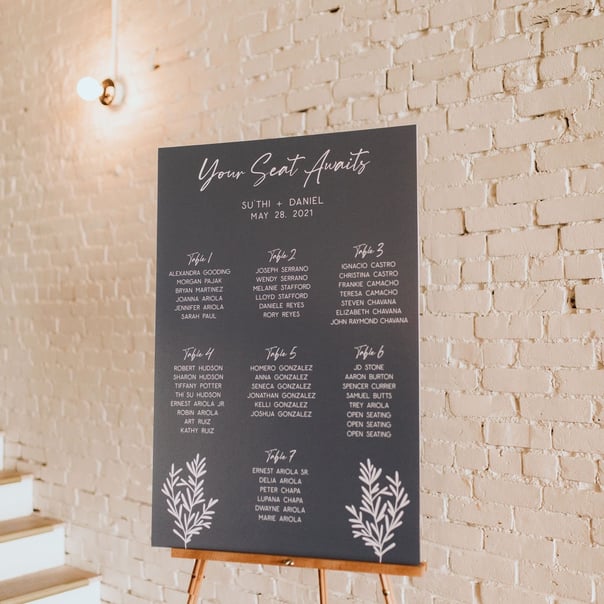 Your Seat Awaits
SU'THI + DANIEL
MAY 28. 2021
Table 1
ALEXANDRA GOODING
MORGAN PAJAK
BRYAN MARTINEZ
JOANNA ARIOLA
JENNIFER ARIOLA
SARAH PAUL
Table 2
JOSEPH SERRANO
WENDY SERRANO
MELANIE STAFFORD
LLOYD STAFFORD
DANIELE REYES
RORY REYES
Table 3
IGNACIO CASTRO
CHRISTINA CASTRO
FRANKIE CAMACHO
TERESA CAMACHO
STEVEN CHAVANA
ELIZABETH CHAVANA
JOHN RAYMOND CHAVANA
Table 4
ROBERT HUDSON
SHARON HUDSON
TIFFANY POTTER
THI SU HUDSON
ERNEST ARIOLA JR
ROBIN ARIOLA
ART RUIZ
KATHY RUIZ
Table 5
HOMERO GONZALEZ
ANNA GONZALEZ
SENECA GONZALEZ
JONATHAN GONZALEZ
KELLI GONZALEZ
JOSHUA GONZALEZ
Table 6
JD STONE
AARON BURTON
SPENCER CURRIER
SAMUEL BUTTS
TREY ARIOLA
OPEN SEATING
OPEN SEATING
OPEN SEATING
Table 7
ERNEST ARIOLA SR.
DELIA ARIOLA
PETER CHAPA
LUPANA CHAPA
DWAYNE ARIOLA
MARIE ARIOLA